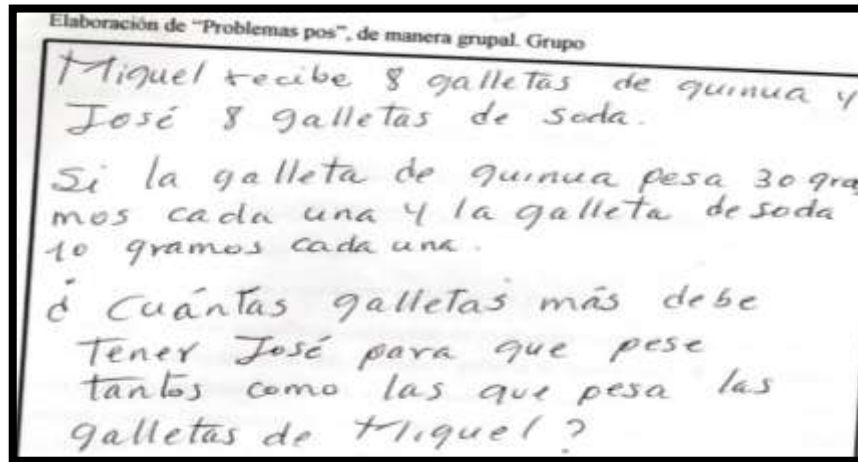 Elaboración de “Problemas pos”, de manera grupal. Grupo
Miguel recibe 8 galletas de quinua y
José 8 galletas de soda.
Si la galleta de quinua pesa 30 gra
mos cada una y la galleta de soda
10 gramos cada una.
¿ Cuántas galletas más debe
Tener José para que pese
tantos como las que pesa las
galletas de Miguel ?